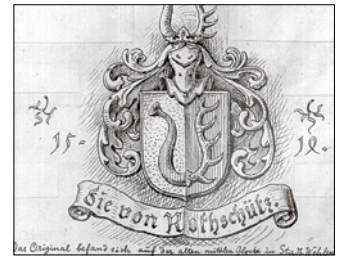 15-
Die von Rothschütz.
Das Original befand sich auf der alten mittlen Glocke in Stadt Wehlen